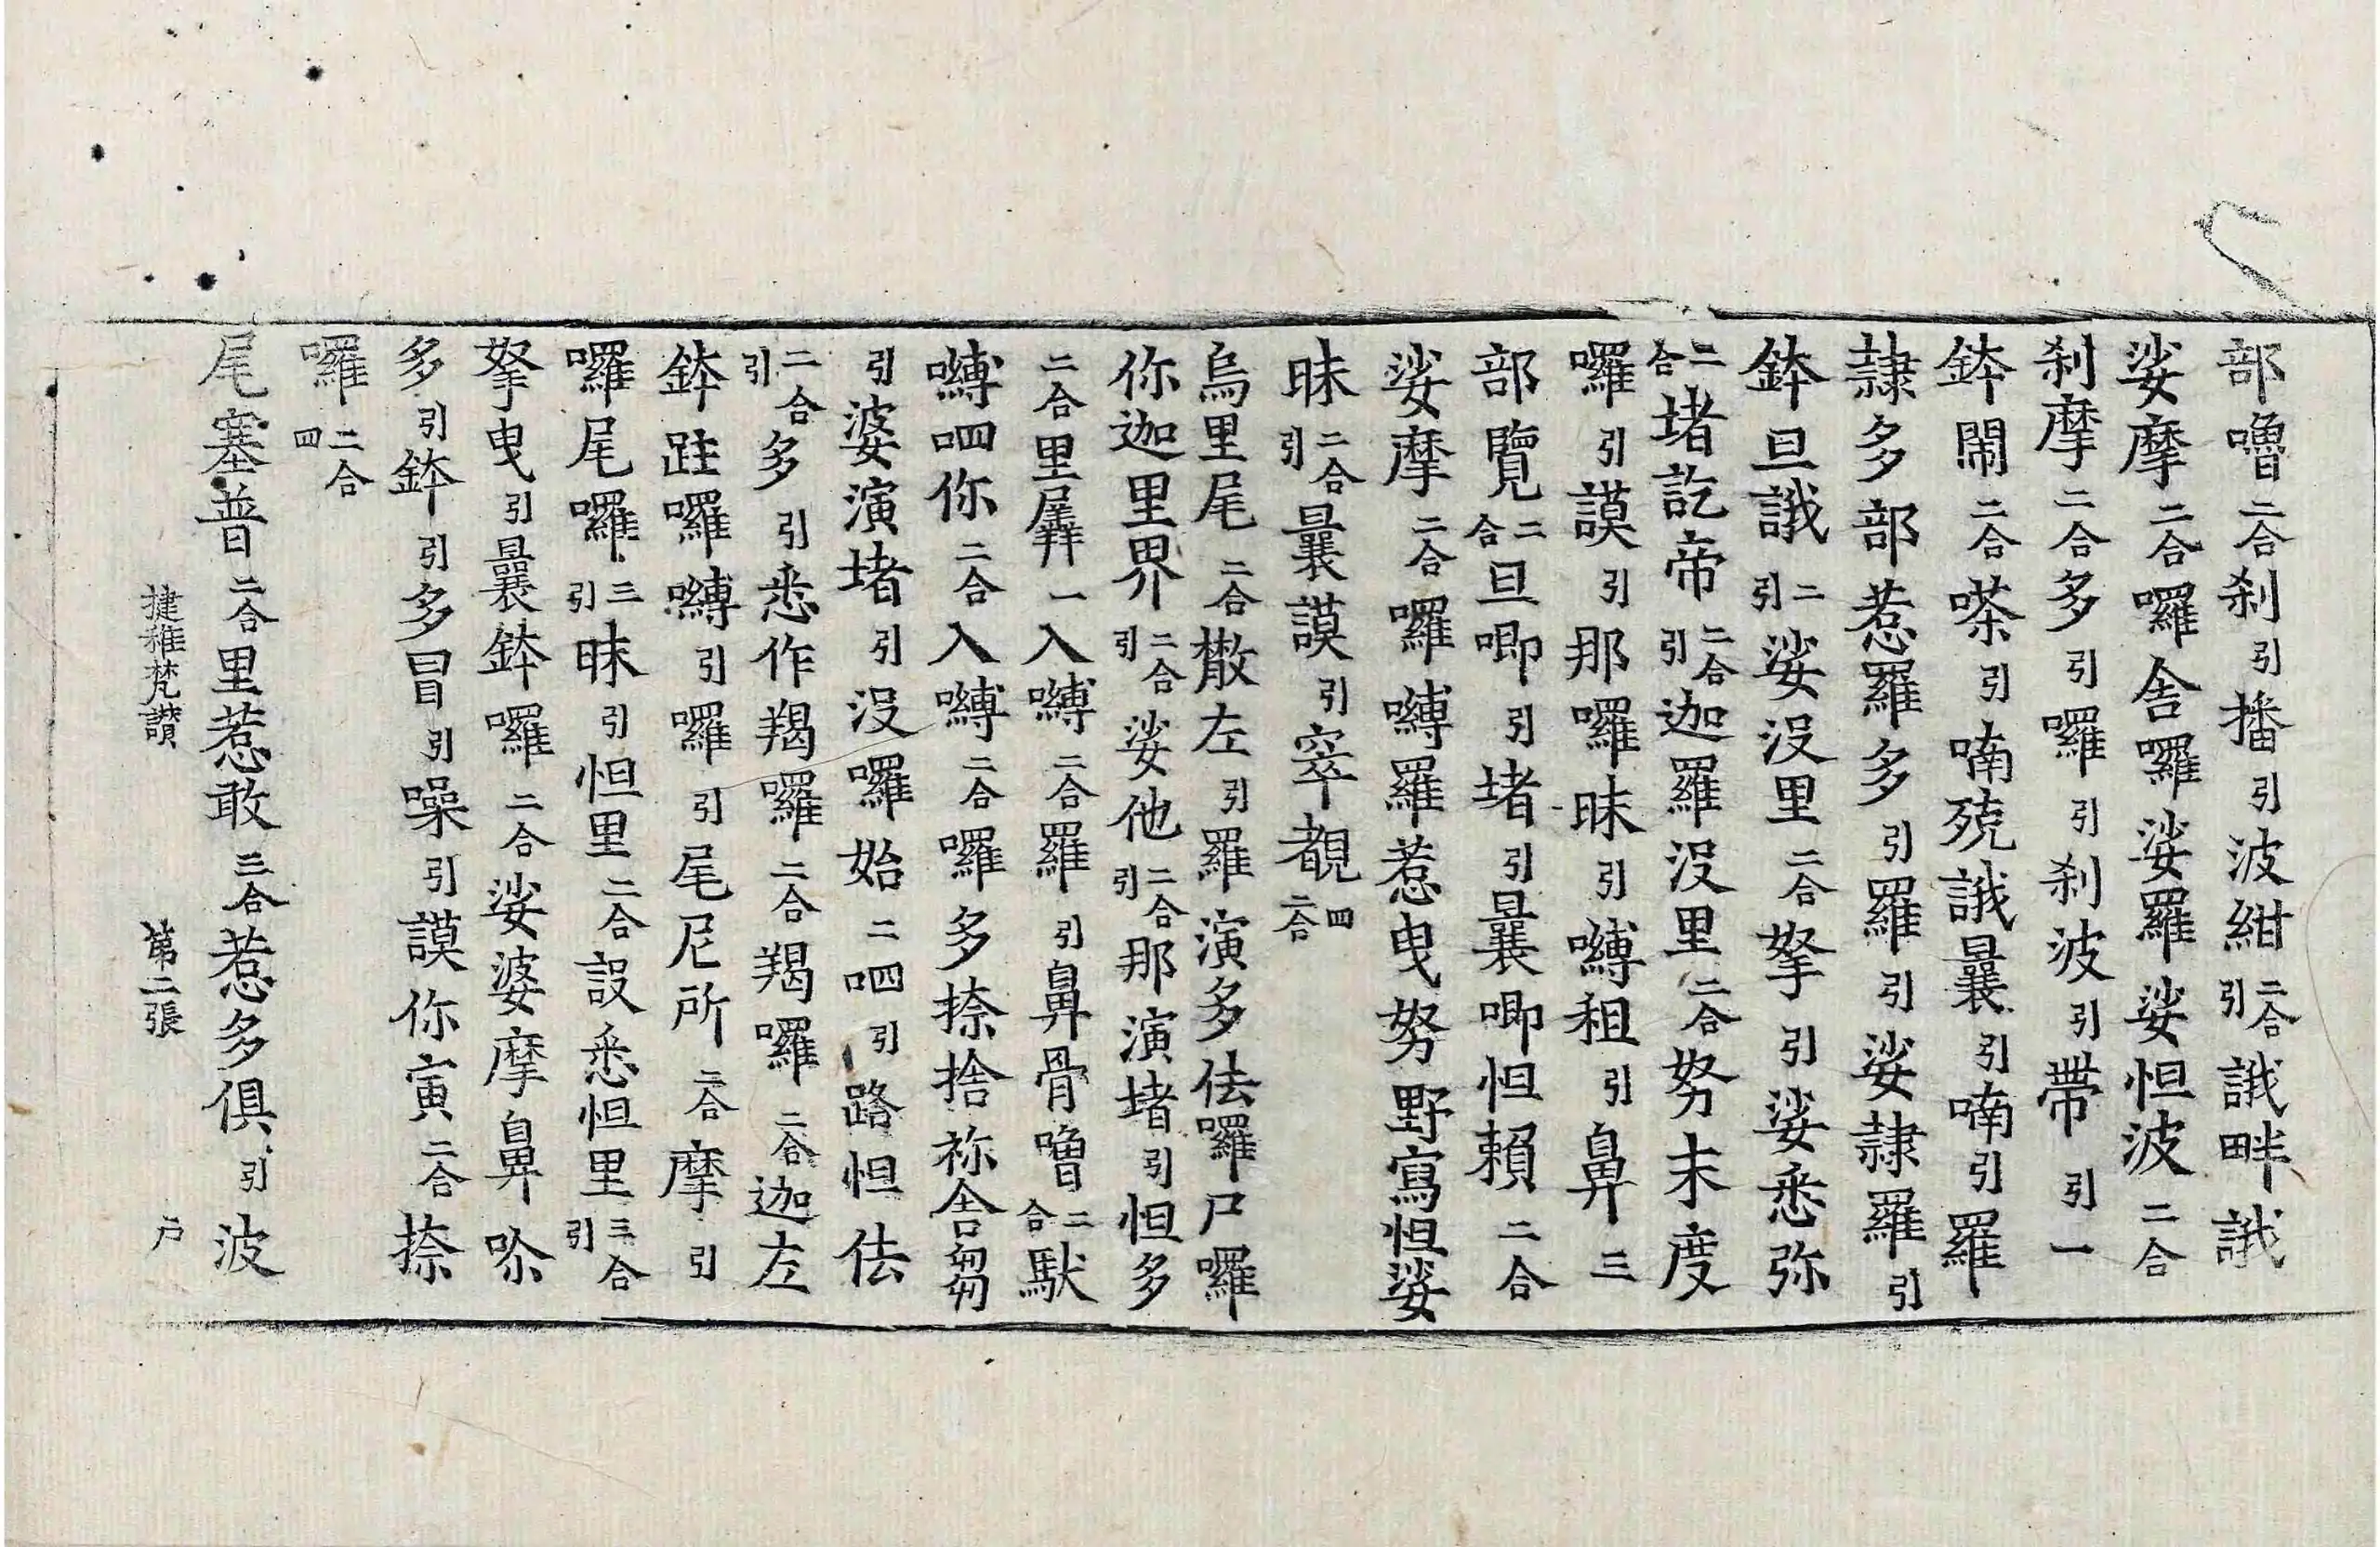 部嚕二合刹引播引波紺二合引誐畔誐
娑摩二合囉舍囉娑羅娑怛波二合
刹摩二合多引囉引刹波引帶引一
鉢閙二合嗏引喃殑誐曩引喃引羅
隷多部惹羅多引羅引娑隷羅引
鉢旦誐二引娑没里二合拏引娑悉弥
二合堵訖帝二合引迦羅没里二合努末度
囉引謨引那囉昧引嚩租引鼻三
部覽二合旦唧引堵引曩唧怛賴二合
娑摩二合囉嚩羅惹曳努野寫怛娑
昧二合引曩謨引窣覩四二合
烏里尾二合散左引羅演多佉囉尸囉
你迦里界二合引娑他二合引那演堵引怛多
二合里羼一入嚩二合羅引鼻骨嚕二合馱
嚩呬你二合入嚩二合囉多捺捨祢舍芻
引婆演堵引没囉始二呬引路怛佉
二合引多引悉作羯囉二合羯囉二合迦左
鉢跬囉嚩引囉引尾尼所二合摩引
囉尾囉三引昧引怛里二合設悉怛里三合引
拏曳引曩鉢囉二合娑婆摩鼻哛
多引鉢引多冒引噪引謨你寅二合捺
囉二合四
尾塞普二合里惹敢三合惹多俱引波
捷稚梵讃　第二張　户